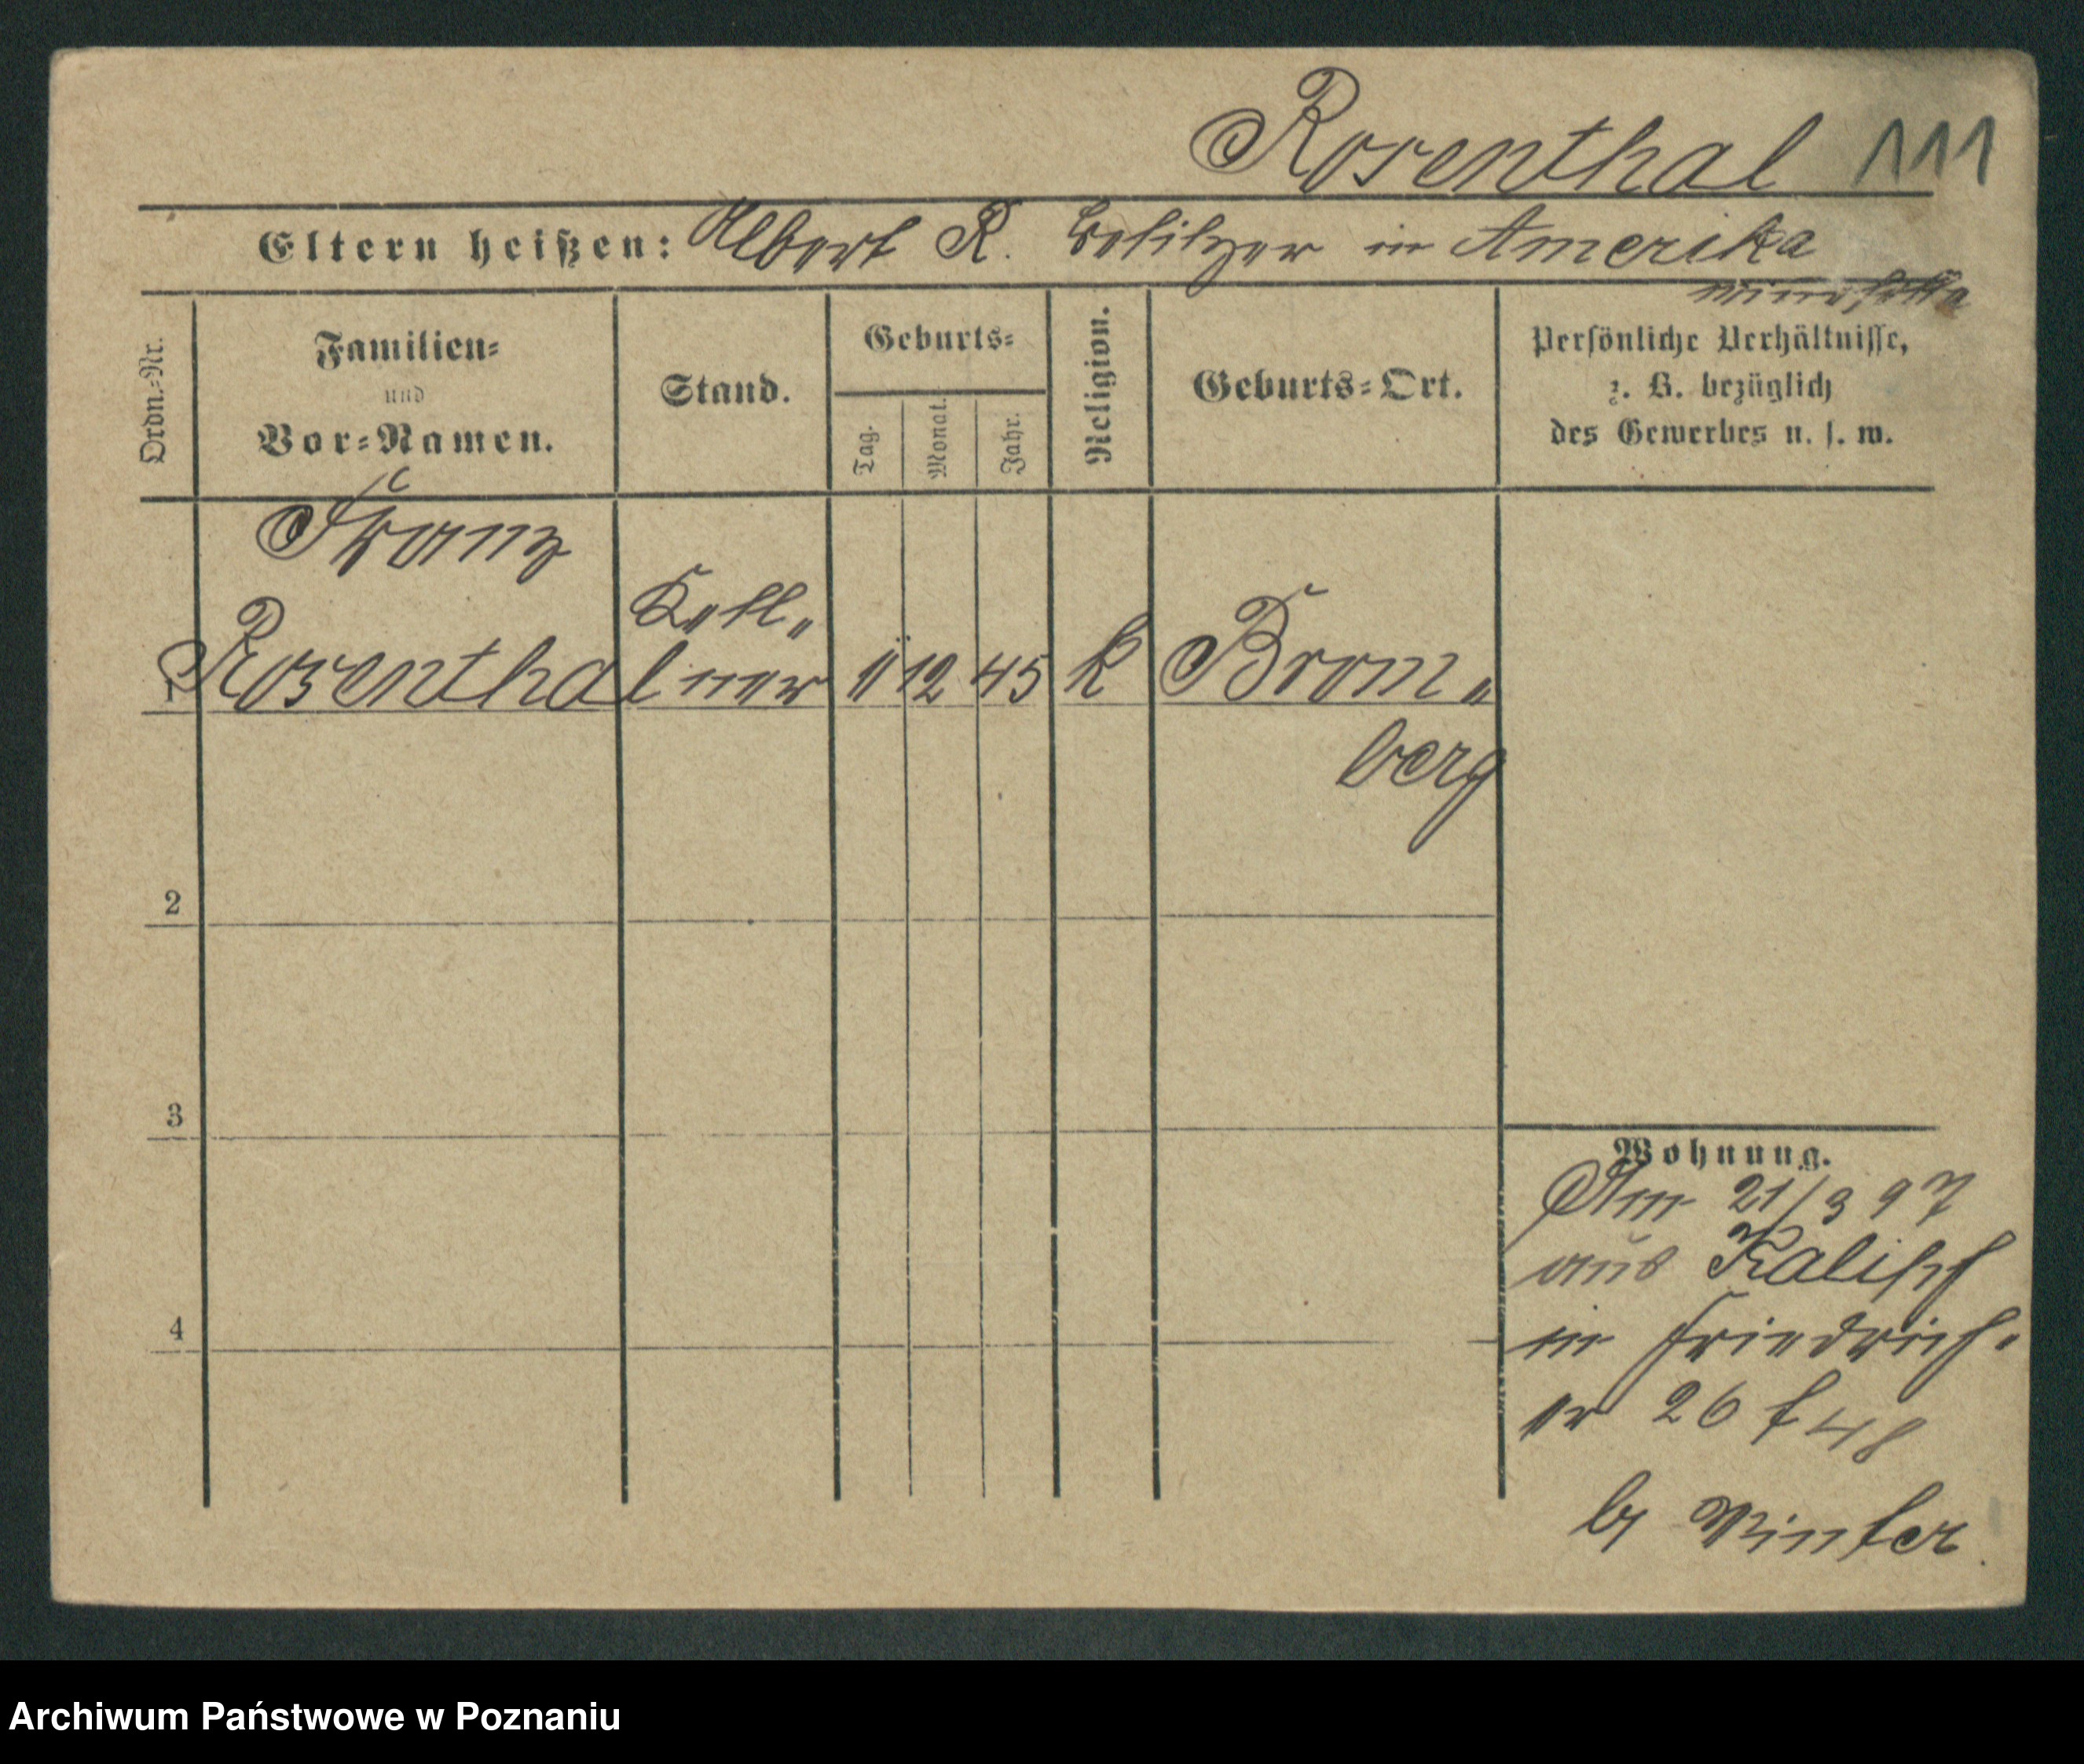 Rosenthal 111
Eltern heißen: Albert R. Besitzer in Amerika
Minnesotta
Ordn.-Nr.
Familien-
und
Vor-Namen.
Stand.
Geburts-
Tag.
Monat.
Jahr.
Religion.
Geburts-Ort.
Persönliche Verhältnisse,
z. B. bezüglich
des Gewerbes u. s. w.
Franz
Kell„
1 Rosenthal ner 12 45 k Brom„
berg
2
3
4
Wohnung.
Am 21/3 97
aus Kalisch
in Friedrich-
26 48
b/ Winter.
Archiwum Państwowe w Poznaniu